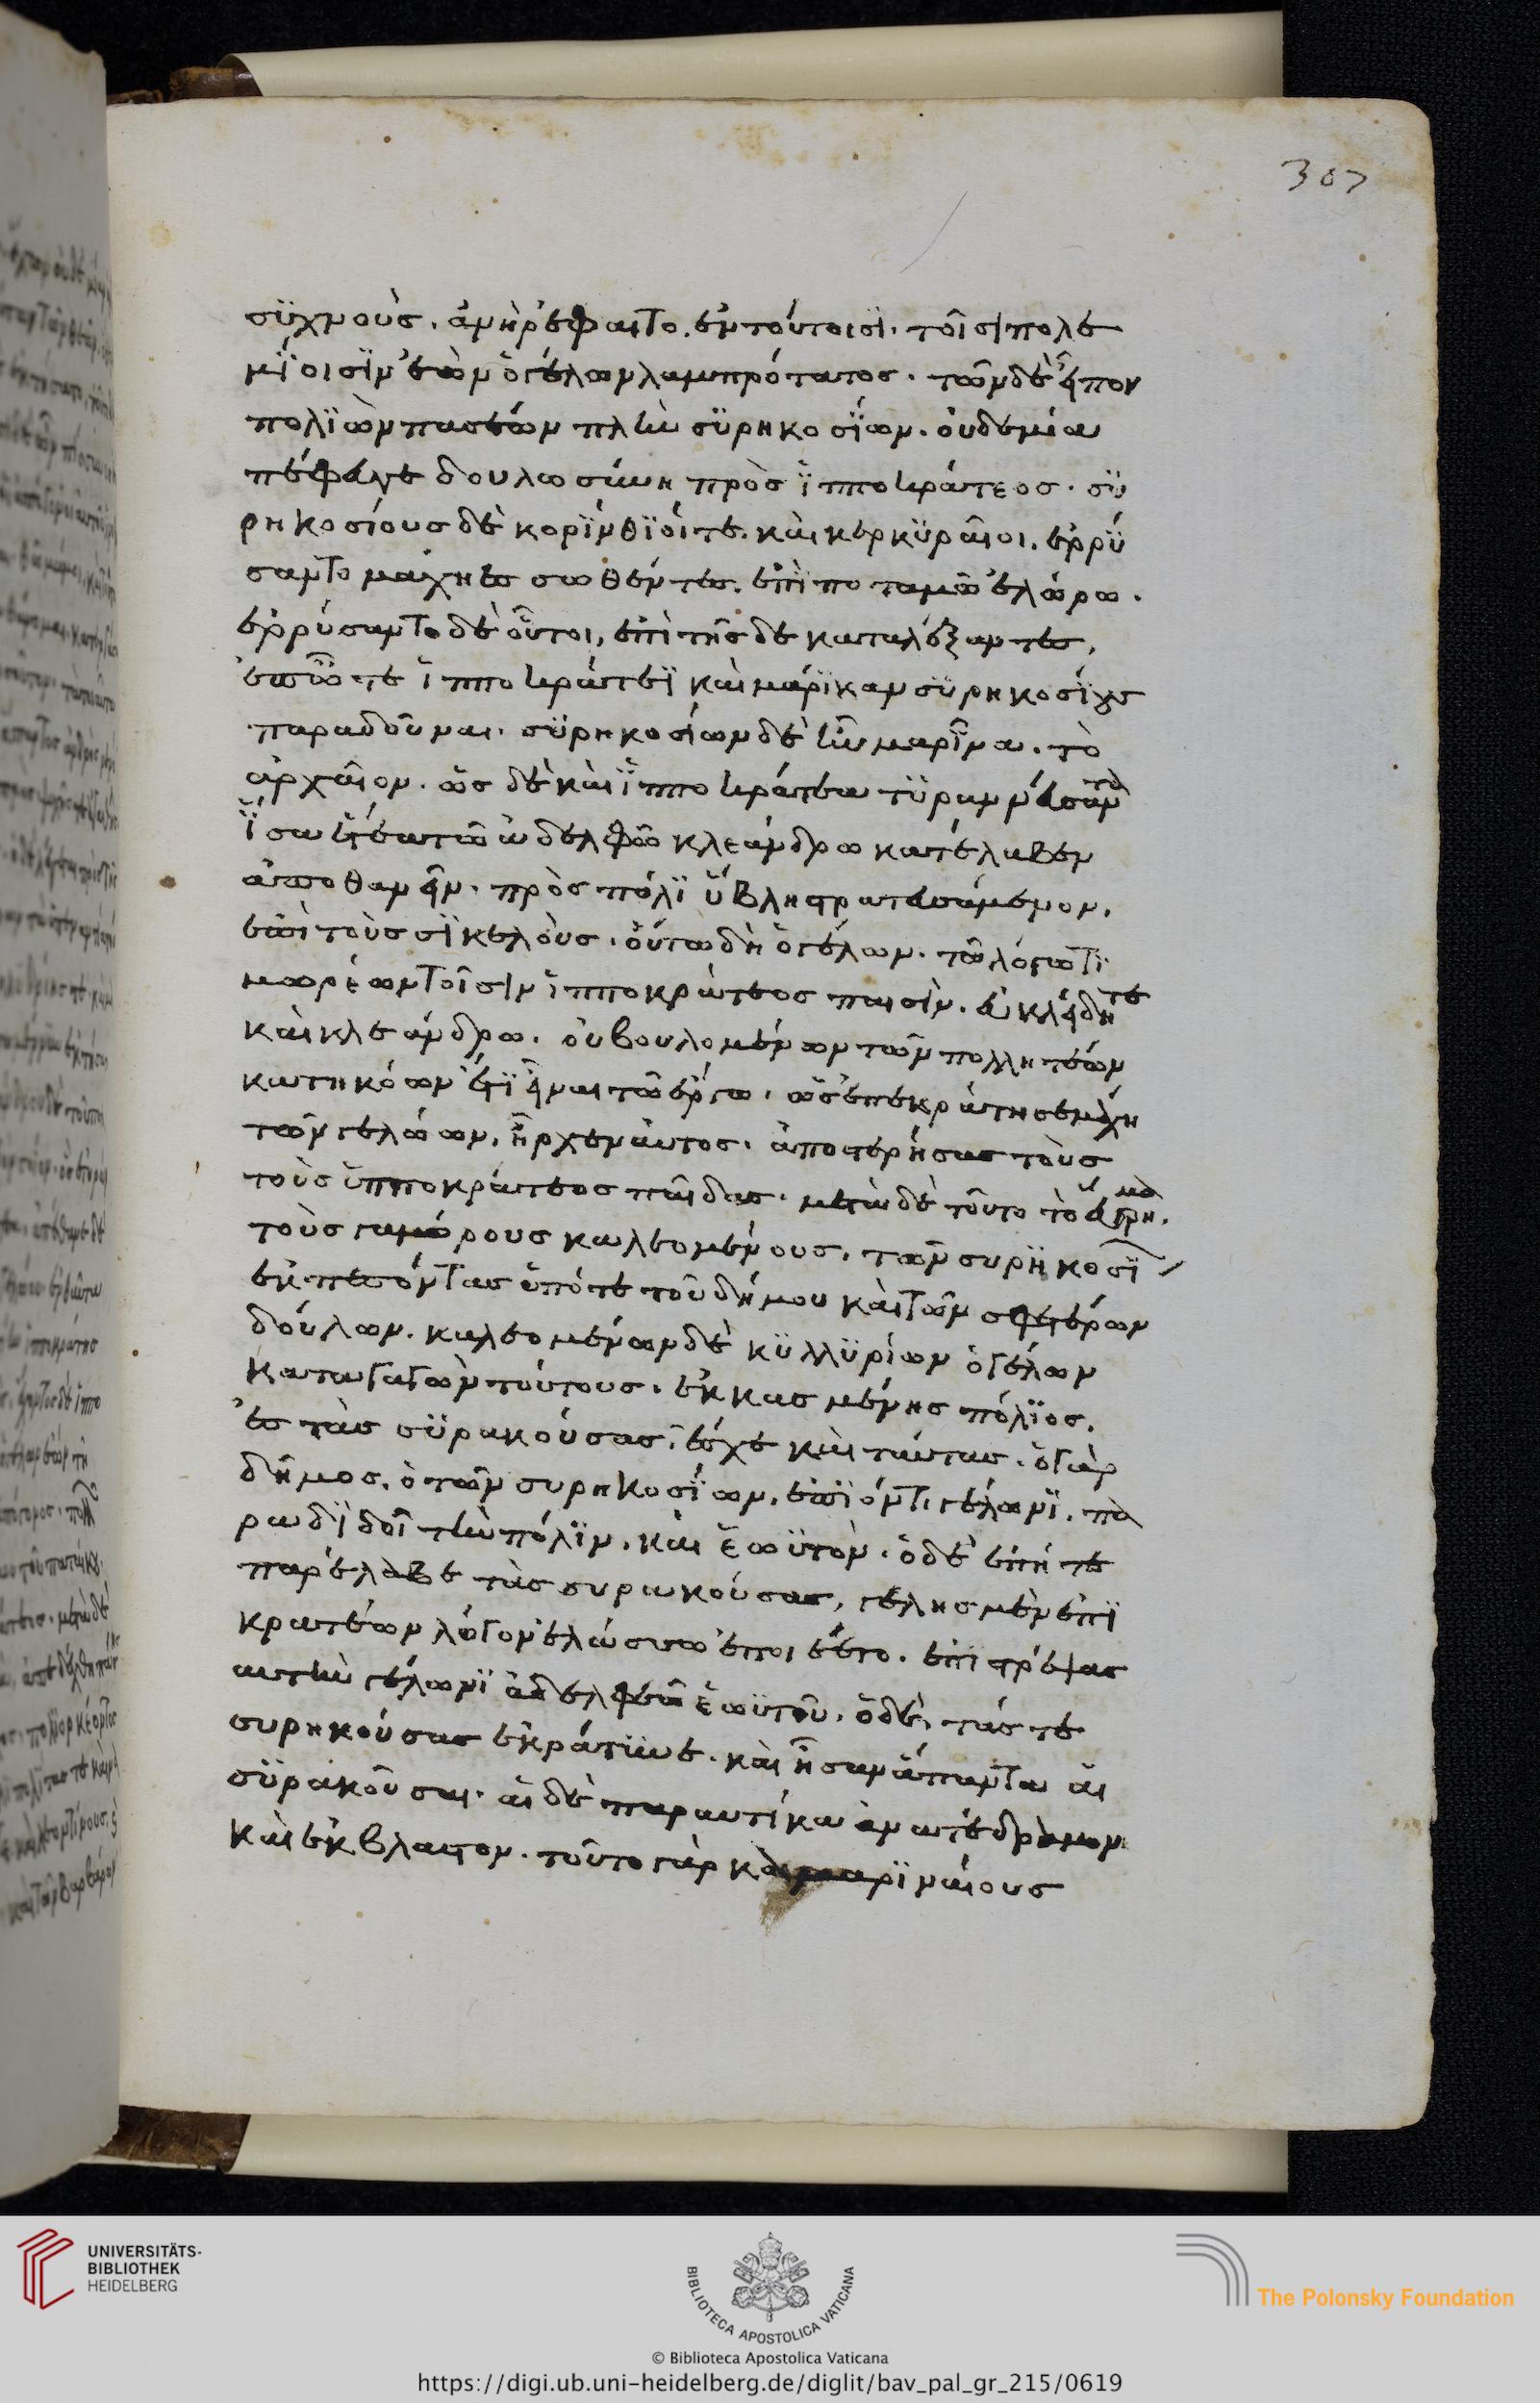 307
συχνοὺς. ἀνὴρ ἐφαίνετο. ἐν τούτοισι. τοῖσι πολε
μίοισιν ἐὼν ὁ γέλων λαμπρότατος. τῶν δὲ εἶπον
πολίων πασέων πλὴν συρηκοσίων. οὐδεμία
πέφευγε δουλοσύνη πρὸς ἱπποκράτεος. συ
ρηκοσίους δὲ κορίνθιοί τε. καὶ κερκυραῖοι. ἐρρύ
σαντο μάχῃ ἑσσωθέντες. ἐπὶ ποταμῶ ἐλώρω.
ἐρρύσαντο δὲ οὗτοι, ἐπὶ τῆσδε καταλέξαντες,
ἐπ ὧτε ἱπποκράτεϊ καμάριναν συρηκοσίους
παραδοῦναι. συρηκοσίων δὲ ἦν μαρῖνα. τὸ
ἀρχαῖον. ὡς δὲ καὶ ἱπποκράτεα τυραννεύσαντα
ἴσα ἔτεα τῶ ἀδελφῶ κλεάνδρω κατέλαβεν
ἀποθανεῖν. πρὸς πόλι ὕβλη στρατευσάμενον.
ἐπὶ τοὺς σικελοὺς. οὕτω δὴ ὁ γέλων. τῶ λόγω τι
μωρέων τοῖσιν ἱπποκράτεος παισὶν. εὐκλείδῃ τε
καὶ κλεάνδρω. οὐ βουλομένων τῶν πολλητέων
κατηκόων ἔτι εἶναι τῶ ἔργω. ὡς ἐπεκράτησε μάχῃ
τῶν γελώων, ἦρχεν αὐτος. ἀποστερήσας τοὺς
τοὺς ἱπποκράτεος παῖδας. μετὰ δὲ τοῦτο τὸ εὕρημα.
τοὺς γαμόρους καλεομένους. τῶν συρηκοσί
ἐκπεσόντας ὑπό τε τοῦ δήμου καὶ τῶν σφετέρων
δούλων. καλεομένων δὲ κυλλυρίων ὁ γέλων
καταγαγὼν τούτους. ἐκ κασμένης πόλιος.
ἐς τὰς συρακούσας. ἔσχε καὶ ταύτας. ὁ γὰρ
δῆμος, ὁ τῶν συρηκοσίων. ἐπιόντι γέλωνι. πα
ραδιδοῖ τὴν πόλιν. καὶ ἑωυτὸν. ὁ δὲ ἐπεί τε
παρέλαβε τὰς συρακούσας, γέλης μὲν ἐπι
κρατέων λόγον ἐλάσσω ἐποιέετο. ἐπιτρέψας
αὐτὴν γέλωνι ἀδελφεῶ ἑωυτοῦ. ὁ δὲ, τάς τε
συρηκούσας ἐκράτυνε. καὶ ἦσαν ἅπαντα αἱ
συρακοῦσαι. αἱ δὲ παραυτίκα ἀνατέδραμον
καὶ ἔκβλαστον. τοῦτο γὰρ καμαριναίους
UNIVERSITÄTS-
BIBLIOTHEK
HEIDELBERG
BIBLIOTECA APOSTOLICA VATICANA
The Polonsky Foundation
© Biblioteca Apostolica Vaticana
https://digi.ub.uni-heidelberg.de/diglit/bav_pal_gr_215/0619